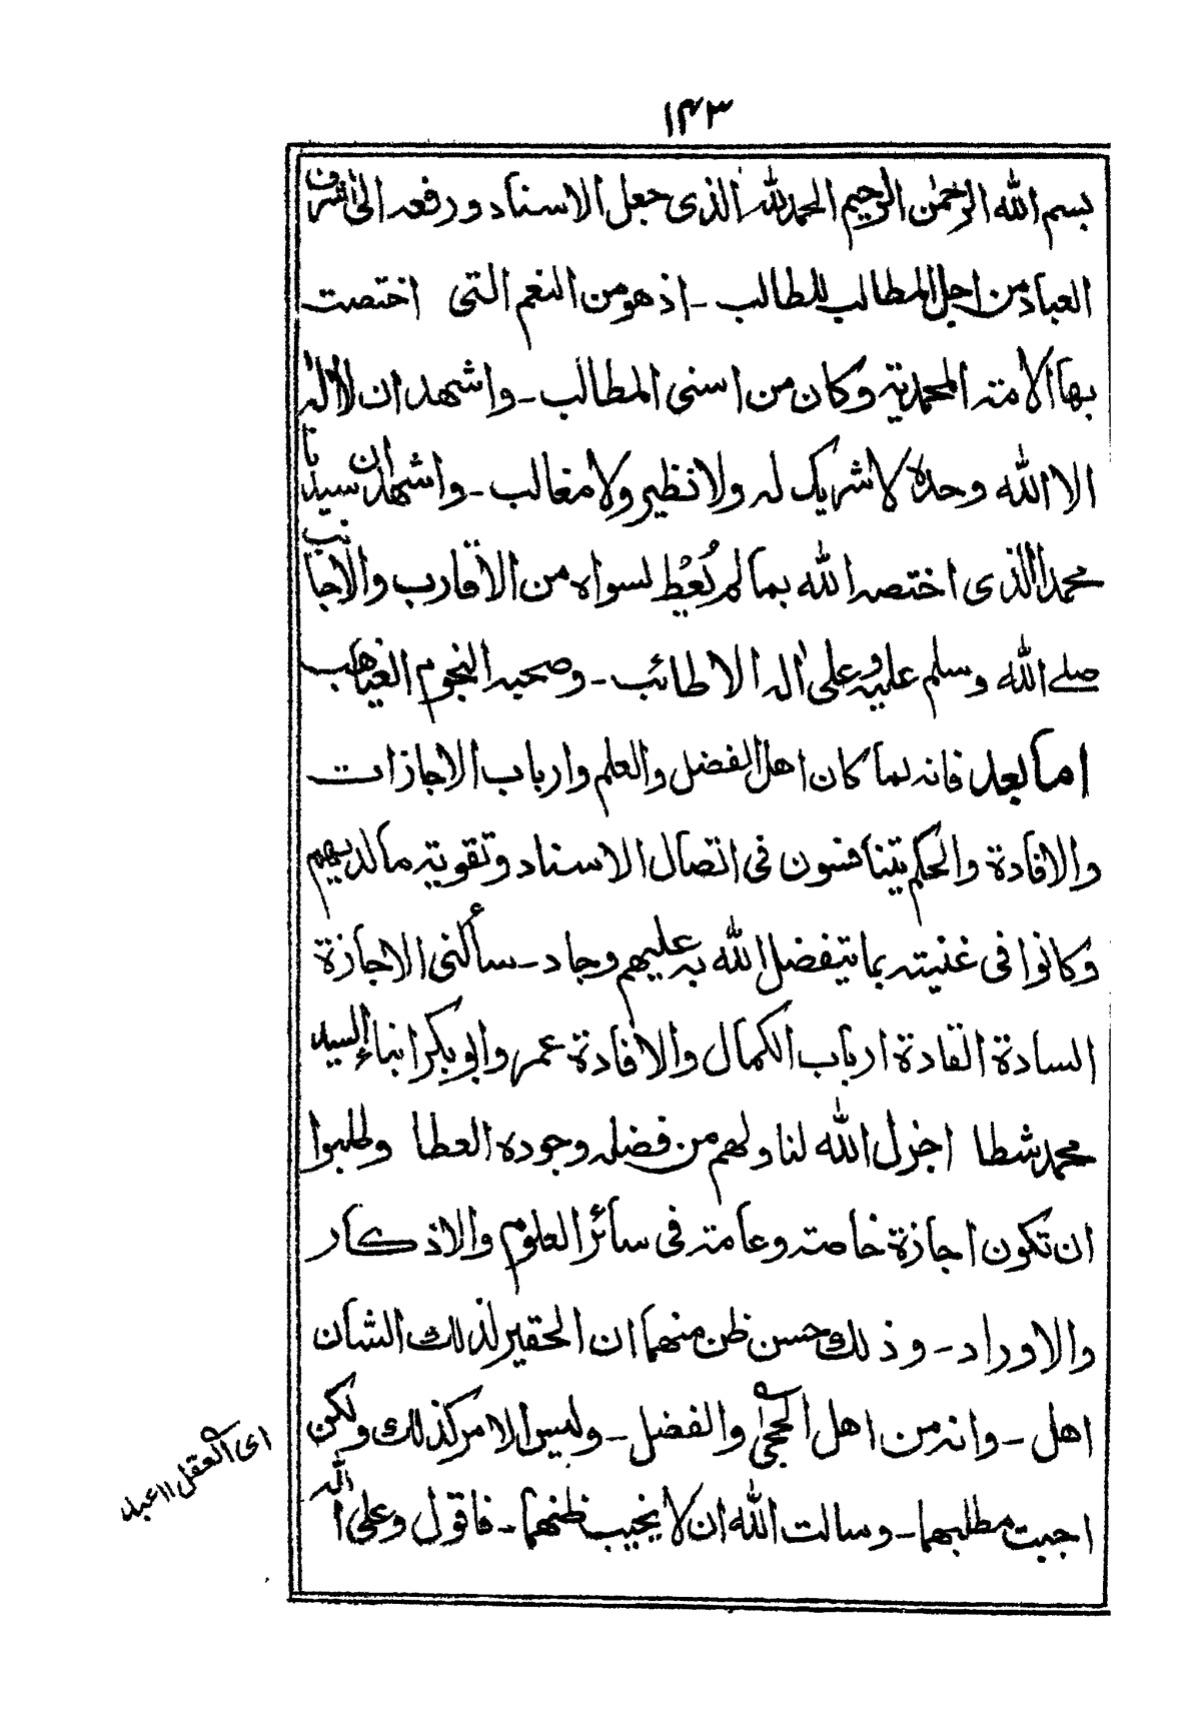 ١٤٣
بسم الله الرحمٰن الرحيم الحمد لله الذى جعل الاسناد ورفعه الى اشرف
العباد من اجل المطالب للطالب - اذ هو من النعم التى اختصت
بها الامة المحمدية وكان من اسنى المطالب - واشهد ان لا اله
الا الله وحده لا شريك له ولا نظير ولا مغالب - واشهد ان سيدنا
محمدا الذى اختصه الله بما لم يُعْطِ لسواه من الاقارب والاجانب
صلے الله وسلم عليه وعلى اٰله الاطائب - وصحبه النجوم الغياهب
اما بعد فانه لما كان اهل الفضل والعلم وارباب الاجازات
والافادة والحكم يتنافسون فى اتصال الاسناد وتقوية ما لديهم
وكانوا فى غنية بما يتفضل الله به عليهم وجاد - سألنى الاجازة
السادة القادة ارباب الكمال والافادة عمر وابو بكر ابناء السيد
محمد شطا اجزل الله لنا ولهم من فضله وجوده العطا وطلبوا
ان تكون اجازة خاصة وعامة فى سائر العلوم والاذكار
والاوراد - وذلك حسن ظن منهما ان الحقير لذلك الشان
اهل - وانه من اهل الحجى والفضل - وليس الامر كذلك ولكن
اجبت مطلبهما - وسالت الله ان لا يخيب ظنهما - فاقول وعلى الله
اى العقل ١١ عبد